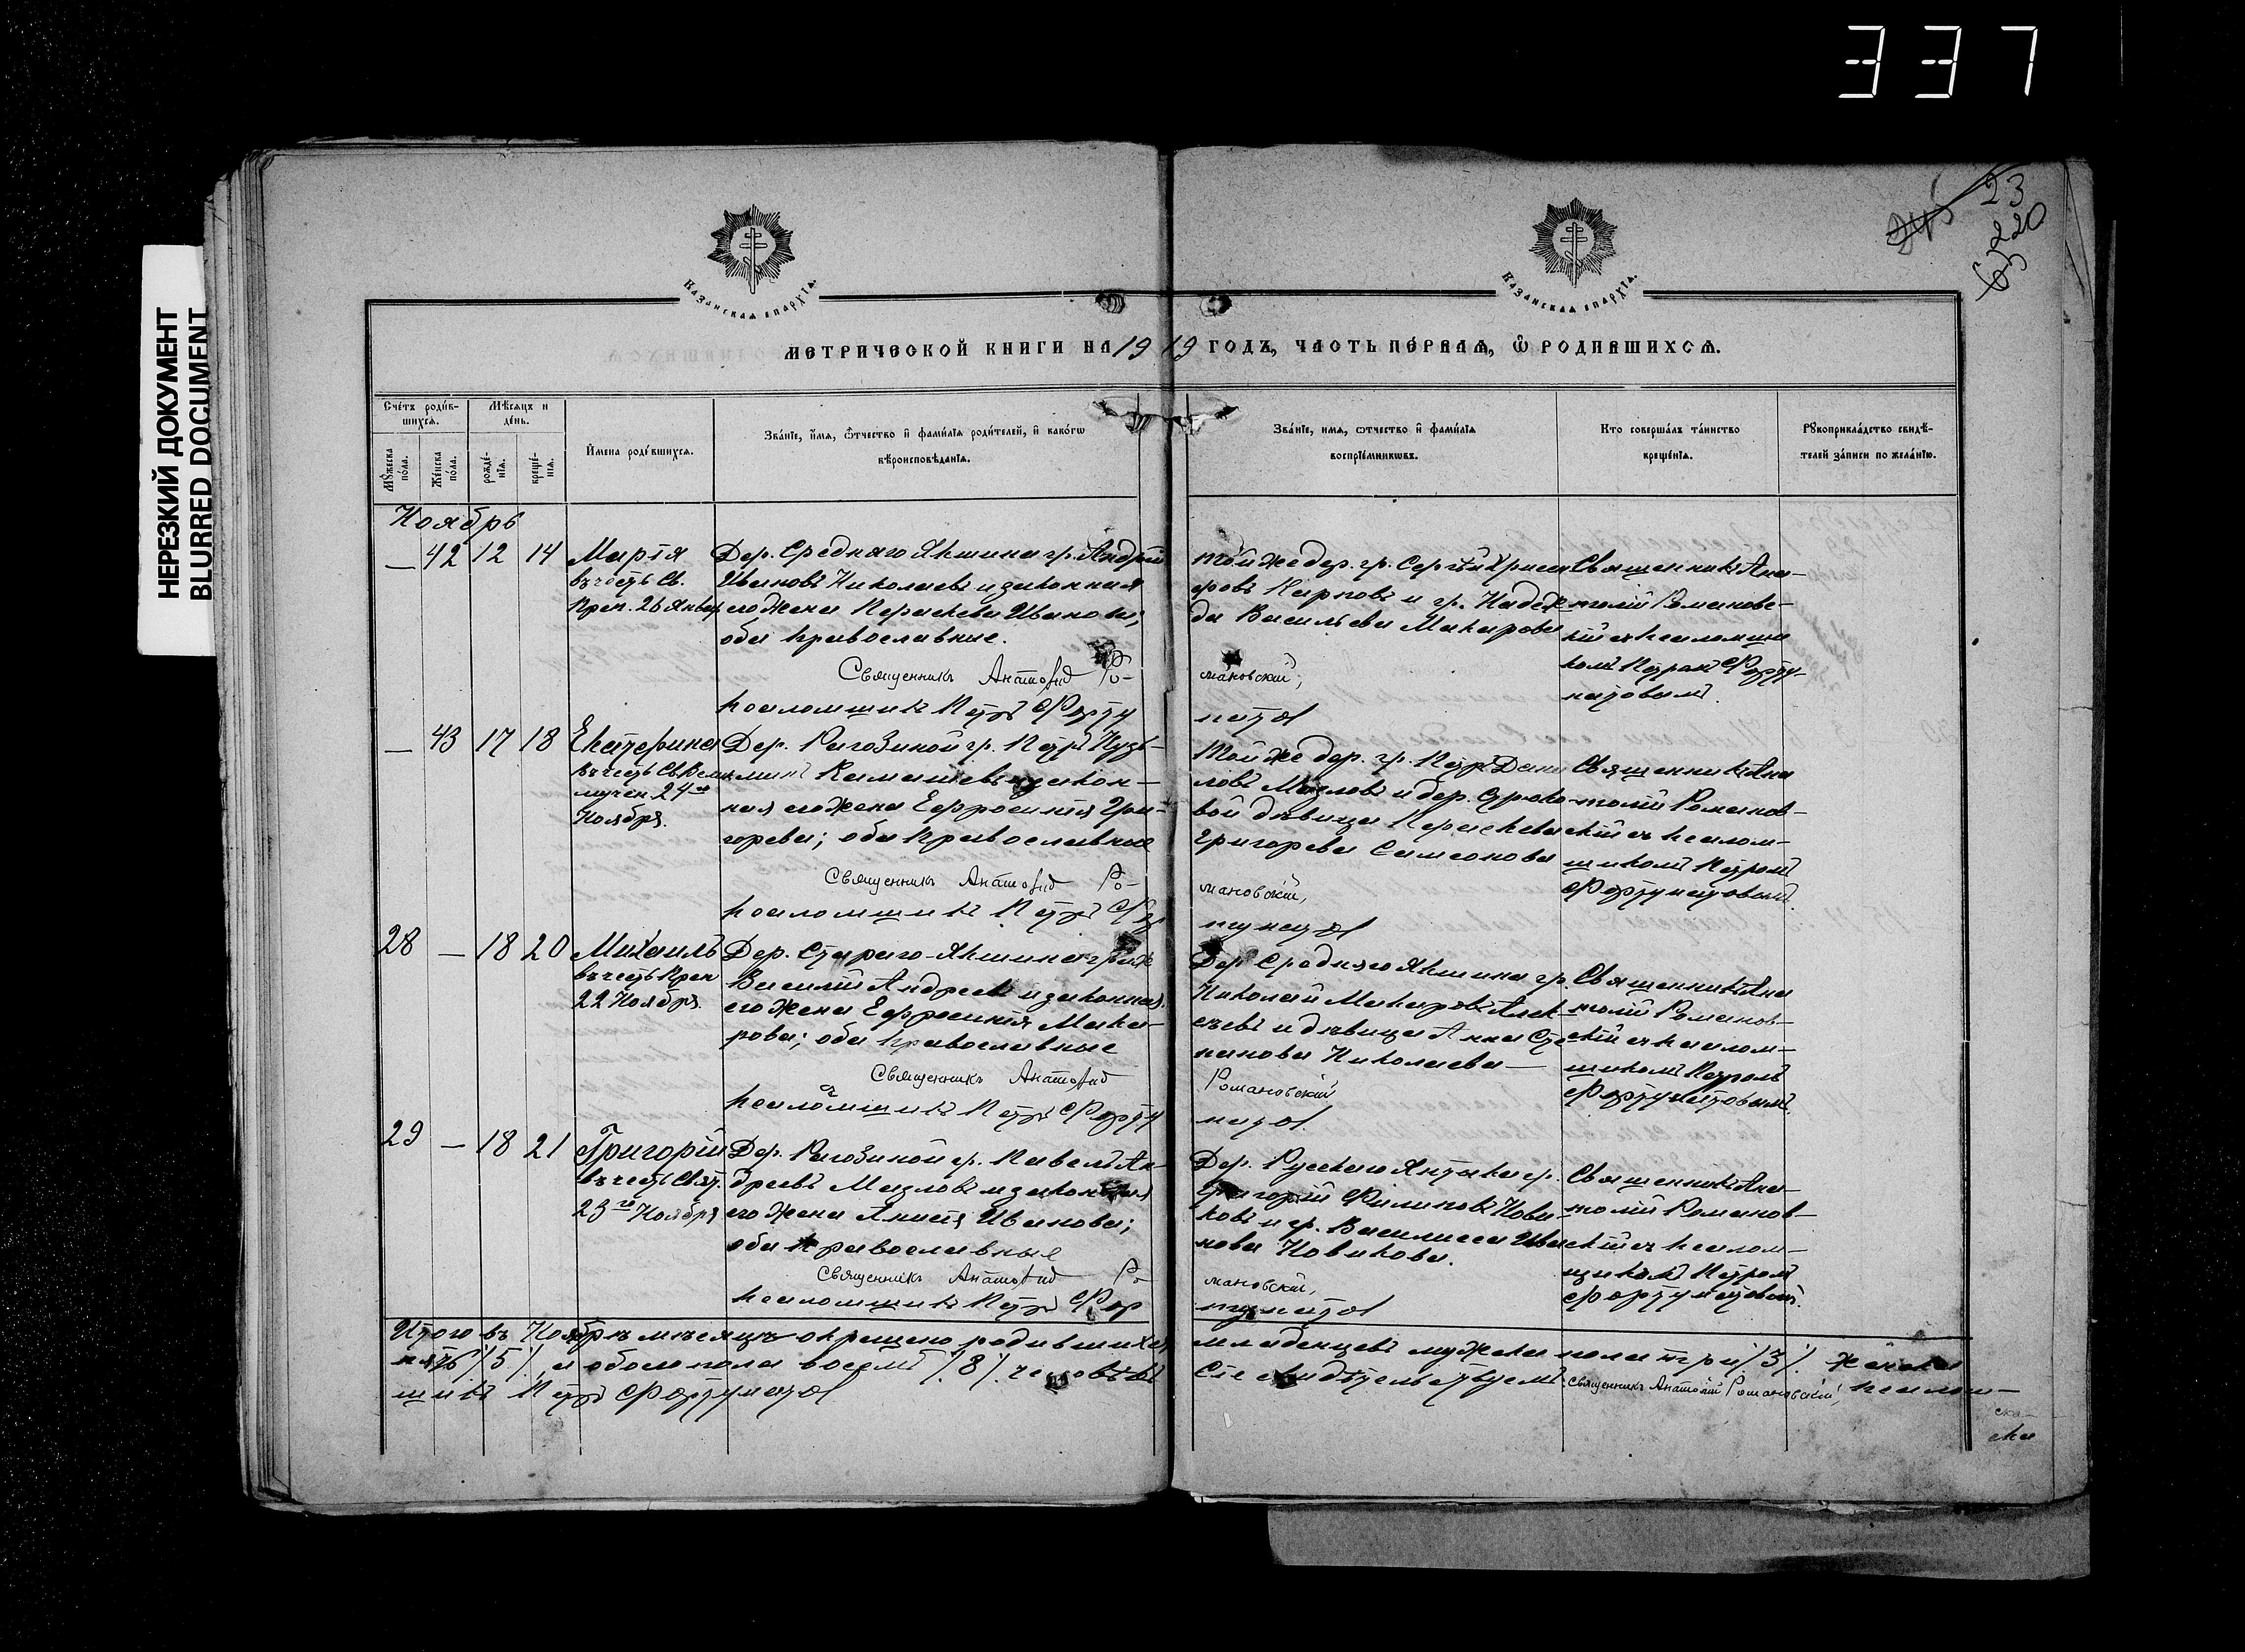 337
НЕРЕЗКИЙ ДОКУМЕНТ
BLURRED DOCUMENT
23
220
65
Казанская епархїа.
Казанская епархїа.
МЕТРИЧЕСКОЙ КНИГИ НА 1919 ГОДЪ, ЧАСТЬ ПЕРВАЯ, Ѿ РОДИВШИХСЯ.
Счетъ родив-
шихся.
Мѣсяцъ и
день.
Мужеска
пола.
Женска
пола.
рожде-
нїя.
креще-
нїя.
Имена родившихся.
Званїе, имя, ѿчество и фамилїя родителей, и какогѡ
вѣроисповѣданїя.
Званїе, имя, ѿчество и фамилїя
воспрїемникѡвъ.
Кто совершалъ таинство
крещенїя.
Рукоприкладство свидѣ-
телей записи по желанїю.
Ноябрь
— 42 12 14
Марія
въ честь Св.
Преп. 26 Январ
Дер. Средняго Якшина гр. Андрей
Ивановъ Николаевъ и законная
его жена Параскева Иванова;
оба православные.
Священникъ Анатолій Ро-
псаломщикъ Петръ Форту
той же дер. гр. Сергѣй Хрисан
фовъ Карповъ и гр. Надеж
да Васильева Макарова
мановскій,
натов
Священникъ Ана-
толій Романовс-
кій съ псаломщи
комъ Петромъ Форту-
натовымъ.
— 43 17 18
Екатерина
въ честь Св. Велик
мучен. 24го
Ноября.
Дер. Рагозиной гр. Петръ Кузь-
минъ Камашевъ и закон-
ная его жена Ефросинія Гри-
горьева; оба православные
Священникъ Анатолій Ро-
псаломщикъ Петръ Фор
Той же дер. гр. Петръ Дани
ловъ Мазловъ и дер. Сурово-
вой дѣвица Параскева
Григорьева Симеонова
мановскій,
тунатов
Священникъ Ана
толій Романов-
скій съ псалом-
щикомъ Петромъ
Фортунатовымъ.
28 — 18 20
Михаилъ
въ честь Преп
22 Ноября.
Дер. Стараго-Якшина граж
Василій Андреевъ и законная
его жена Ефросинія Мака-
рова; оба православные
Священникъ Анатолій
псаломщикъ Петръ Форту
Дер. Средняго Якшина гр.
Николай Макаровъ Алек-
сѣевъ и дѣвица Анна Сте-
панова Николаева —
Романовскій
натов.
Священникъ Ана
толій Романов-
скій съ псалом-
щикомъ Петромъ
Фортунатовымъ.
29 — 18 21
Григорій
въ честь Свят.
23го Ноября
Дер. Рагозиной гр. Павелъ Ан-
дреевъ Мазловъ и законная
его жена Анисія Иванова;
оба православные
Священникъ Анатолій Ро-
псаломщикъ Петръ Фор
Дер. Русскаго Янтыка гр.
Григорій Филиповъ Нови-
ковъ и гр. Василисса Ива
нова Новикова.
мановскій,
тунатов
Священникъ Ана-
толій Романов-
скій съ псалом-
щикомъ Петромъ
Фортунатовымъ.
Итого въ Ноябрѣ мѣсяцѣ окрещено родившихся младенцевъ мужска пола три /3/. женска
пять /5/, а обоего пола восемь /8/. человѣкъ Сіе свидѣтельствуемъ. Священникъ Анатолій Романовскій, псалом-
щикъ Петръ Фортунатов